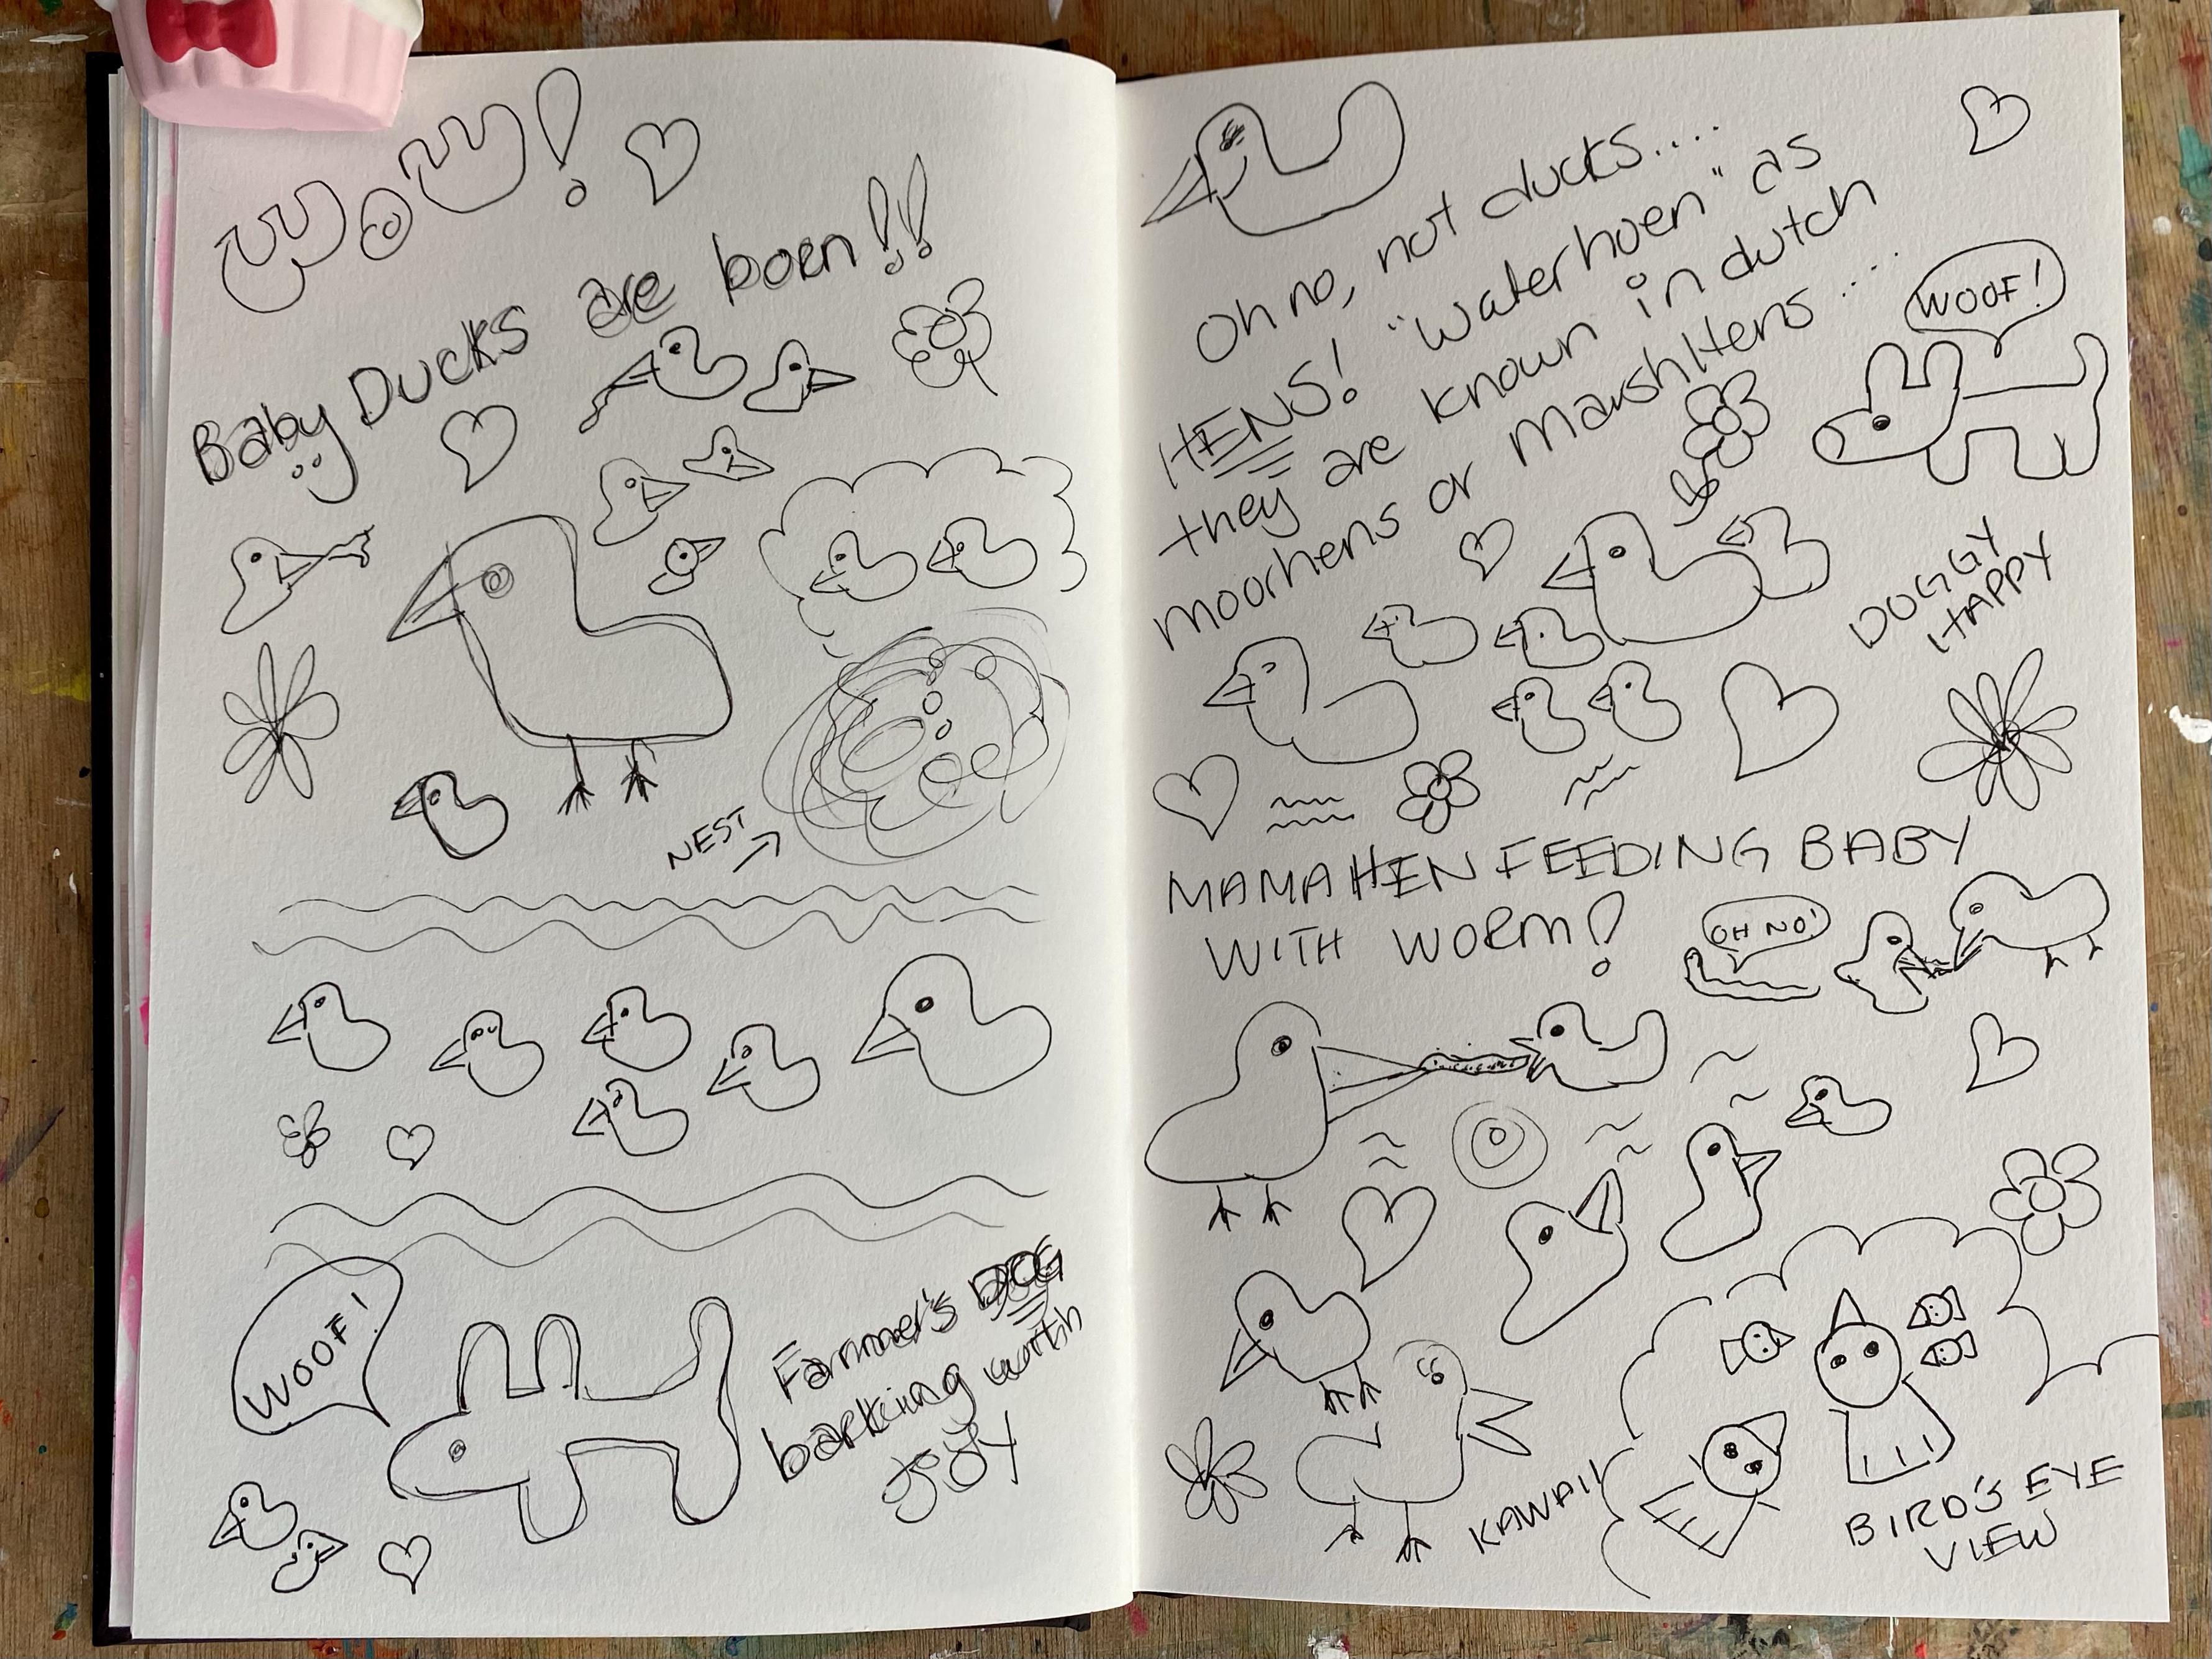 WOW!
Baby Ducks are born!!
NEST
WOOF!
Farmer's DOG
barking with
JOY
Oh no, not ducks....
HENS! "Waterhoen" as
they are known in dutch
moorhens or MarshHens....
WOOF!
DOGGY
HAPPY
MAMA HEN FEEDING BABY
WITH WORM!
OH NO!
KAWAII
BIRD'S EYE
VIEW